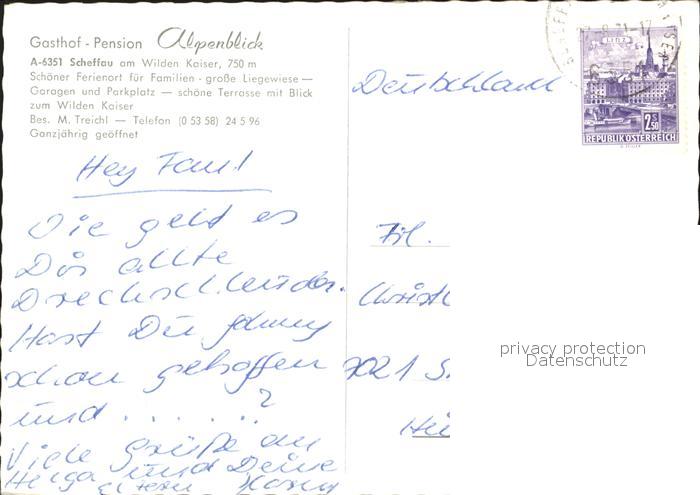 Gasthof - Pension Alpenblick
A-6351 Scheffau am Wilden Kaiser, 750 m
Schöner Ferienort für Familien - große Liegewiese —
Garagen und Parkplatz — schöne Terrasse mit Blick
zum Wilden Kaiser
Bes. M. Treichl — Telefon (0 53 58) 24 5 96
Ganzjährig geöffnet
Hey
Wie geht es
Dir allte
Hast Du
schon getroffen
und . . . . . . ?
Viele Grüße an
Helga und Deine
Eltern
Deutschland
LINZ
2.50
REPUBLIK ÖSTERREICH
Frl.
Christ
7021 S.
privacy protection
Datenschutz